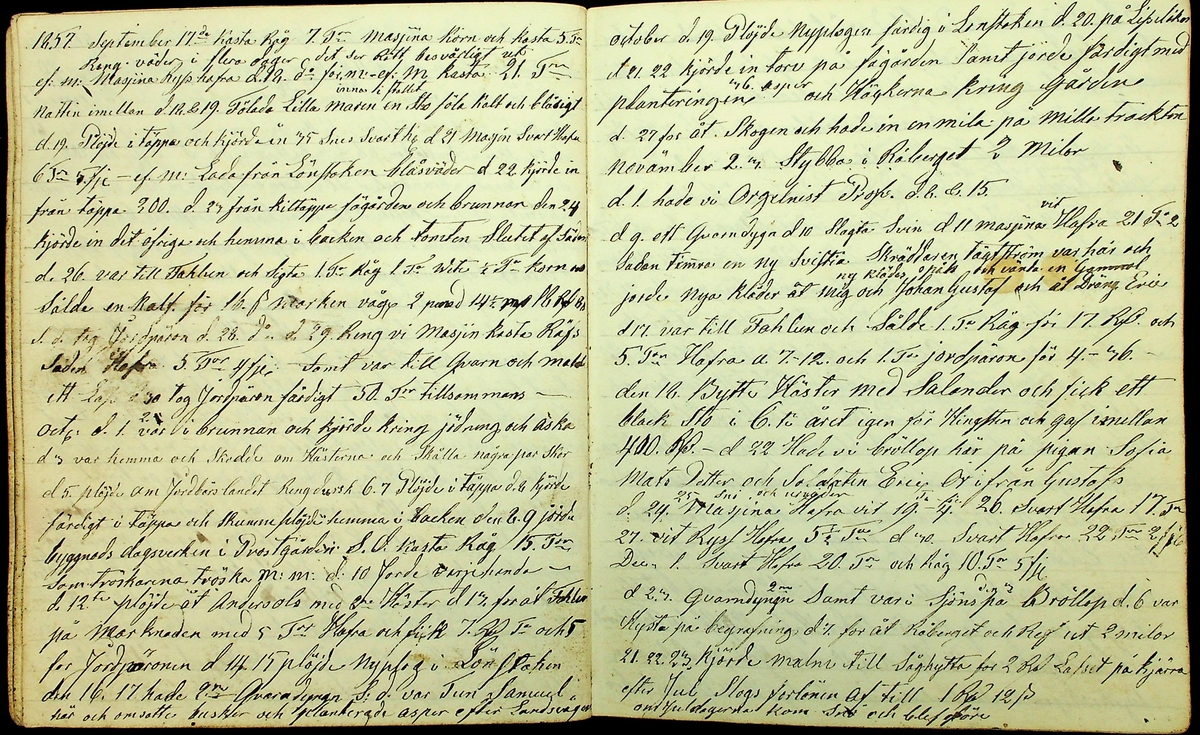 1857. September 17de Kasta Råg 7. Tnr Masjina korn och kasta 5. Tnr
Reng. väder i flera dagar det ser Rätt besvärligt ut
ef. m: Masjina Ryss hafra d.18. do for. m - ef. M Kasta 21. Tnr
innan i stallet
Nattin imellan d. 18. & 19. Fölade Lilla maren en Sto föla kalt och blåsigt
d. 19. Plöjde i täppa och kjörde in 35 Snes Svart h. d 21 Masjin Svart Hafra
6 Tnr 5 fj. – ef m: Lada från Lönstaken blåsväder d 22 kjörde in
från täppa 300. d. 23 från kiltäppa fågården och brunnan den 24
kjörde in det öfriga och hemma i backen och tomten Slutet af Säden
d. 26. var till Fahlun och Sigta 1. Tn Råg 1. Tn Wete ½ Tn korn
Sålde en kalf. för 16. marken våg 2 pund 14½
S. d. tog Jordpäron d. 28. do. d. 29. Reng vi Masjin kasta Råfs
Säden Hafra 5. Tnr 4 fj. – Samt var till Qvarn och malde
ett Las d. 30 tog Jordpäron färdigt 50. Tnr tillsammans –
Oct. d. 1. 2 var vi i brunnan och kjörde kring jödning och aska
d 3 var hemma och Skodde om Hästerna och Skälla några par Skor
d 5. plöjde om Jordbärslandet Rengdursk 6. 7 Plöjde i täppa d. 8 kjörde
färdigt i täppa och Skumplöjde hemma i backen den 8. 9 jorde
byggnads dagsverken i Prostgården S. D. Kasta Råg 15. Tnr
Som tröskarena tröska m: m: d: 10 Jorde varjehanda –
d. 12te plöjde åt Andersols med 2ne Häster d 13. for åt Fahlun
på Marknaden med 5 Tnr Hafra och fick 7. Rd Tn och 5
for Jordpäronen d 14 15 plöjde Nyplog i Lönstaken
den 16. 17. hade 2ne Qvarndyngn S: d. var Tun Samuel
här och omsatte busker och planterade asper efter Landsvägen
October d. 19. Plöjde Nyplogen färdig i Lönstaken d. 20. på
d. 21. 22 kjörde in torv på fågården Samt jorde färdigt med
planteringen 36. asper och Häckerna kring Gården
d. 27 for åt Skogen och hade in en mila på Mille trackten
Novämber 2. 3. Stybba i Råberget 2 Milor
d. 1. hade vi Orgelnist Prof. d. 6. 15.
d 9. ett Qvarndyga d 10 Slagta Svin d 11 masjina vit Hafra 21 Tnr 2
Ladan timra en ny Svistia Skräddaren Tägtström var här och
ny kläder och vänta en Gammal
jorde nya kläder åt mig och Johan Gustaf och åt Dräng Eric
d 17. var till Fahlun och Sålde 1. Tn Råg för 17. Rd. och
5. Tnr Hafra a 7–12. och 1. Tn jordpäron för 4.– 36. –
den 18. Bytte Häster med Salander och fick ett
black Sto i 6. te året igen för Hingsten och gaf emellan
400. Rd. – d 22 Hade vi bröllop här på pigan Sofia
Mats Dotter och Soldatin Eric Ox ifrån Gustafs
25 Snö och urväder
d. 24. Masjina Hafra vit 19.– 4. 26. Svart Hafra 17. Tnr
27. vit Ryss Hafra 5½ Tnr d 30. Svart Hafra 22 Tnr 2 fj.
Dec. 1. Svart Hafra 20. Tnr och Råg 10. Tnr 5 fj.
d 2. 3. Qvarndyngn 2ne Samt var i Sjöns på Bröllop d. 6 var
Kysta på begrafning d 7. for åt Råberget och Ref ut 2 milor
21. 22. 23. kjörde malm till Såghytta for 2 Rd Lasset på kjärra
efter Jul Slogs forlönen af till 1 Rd 12 s
om Juldagarna kom Snö och blef före